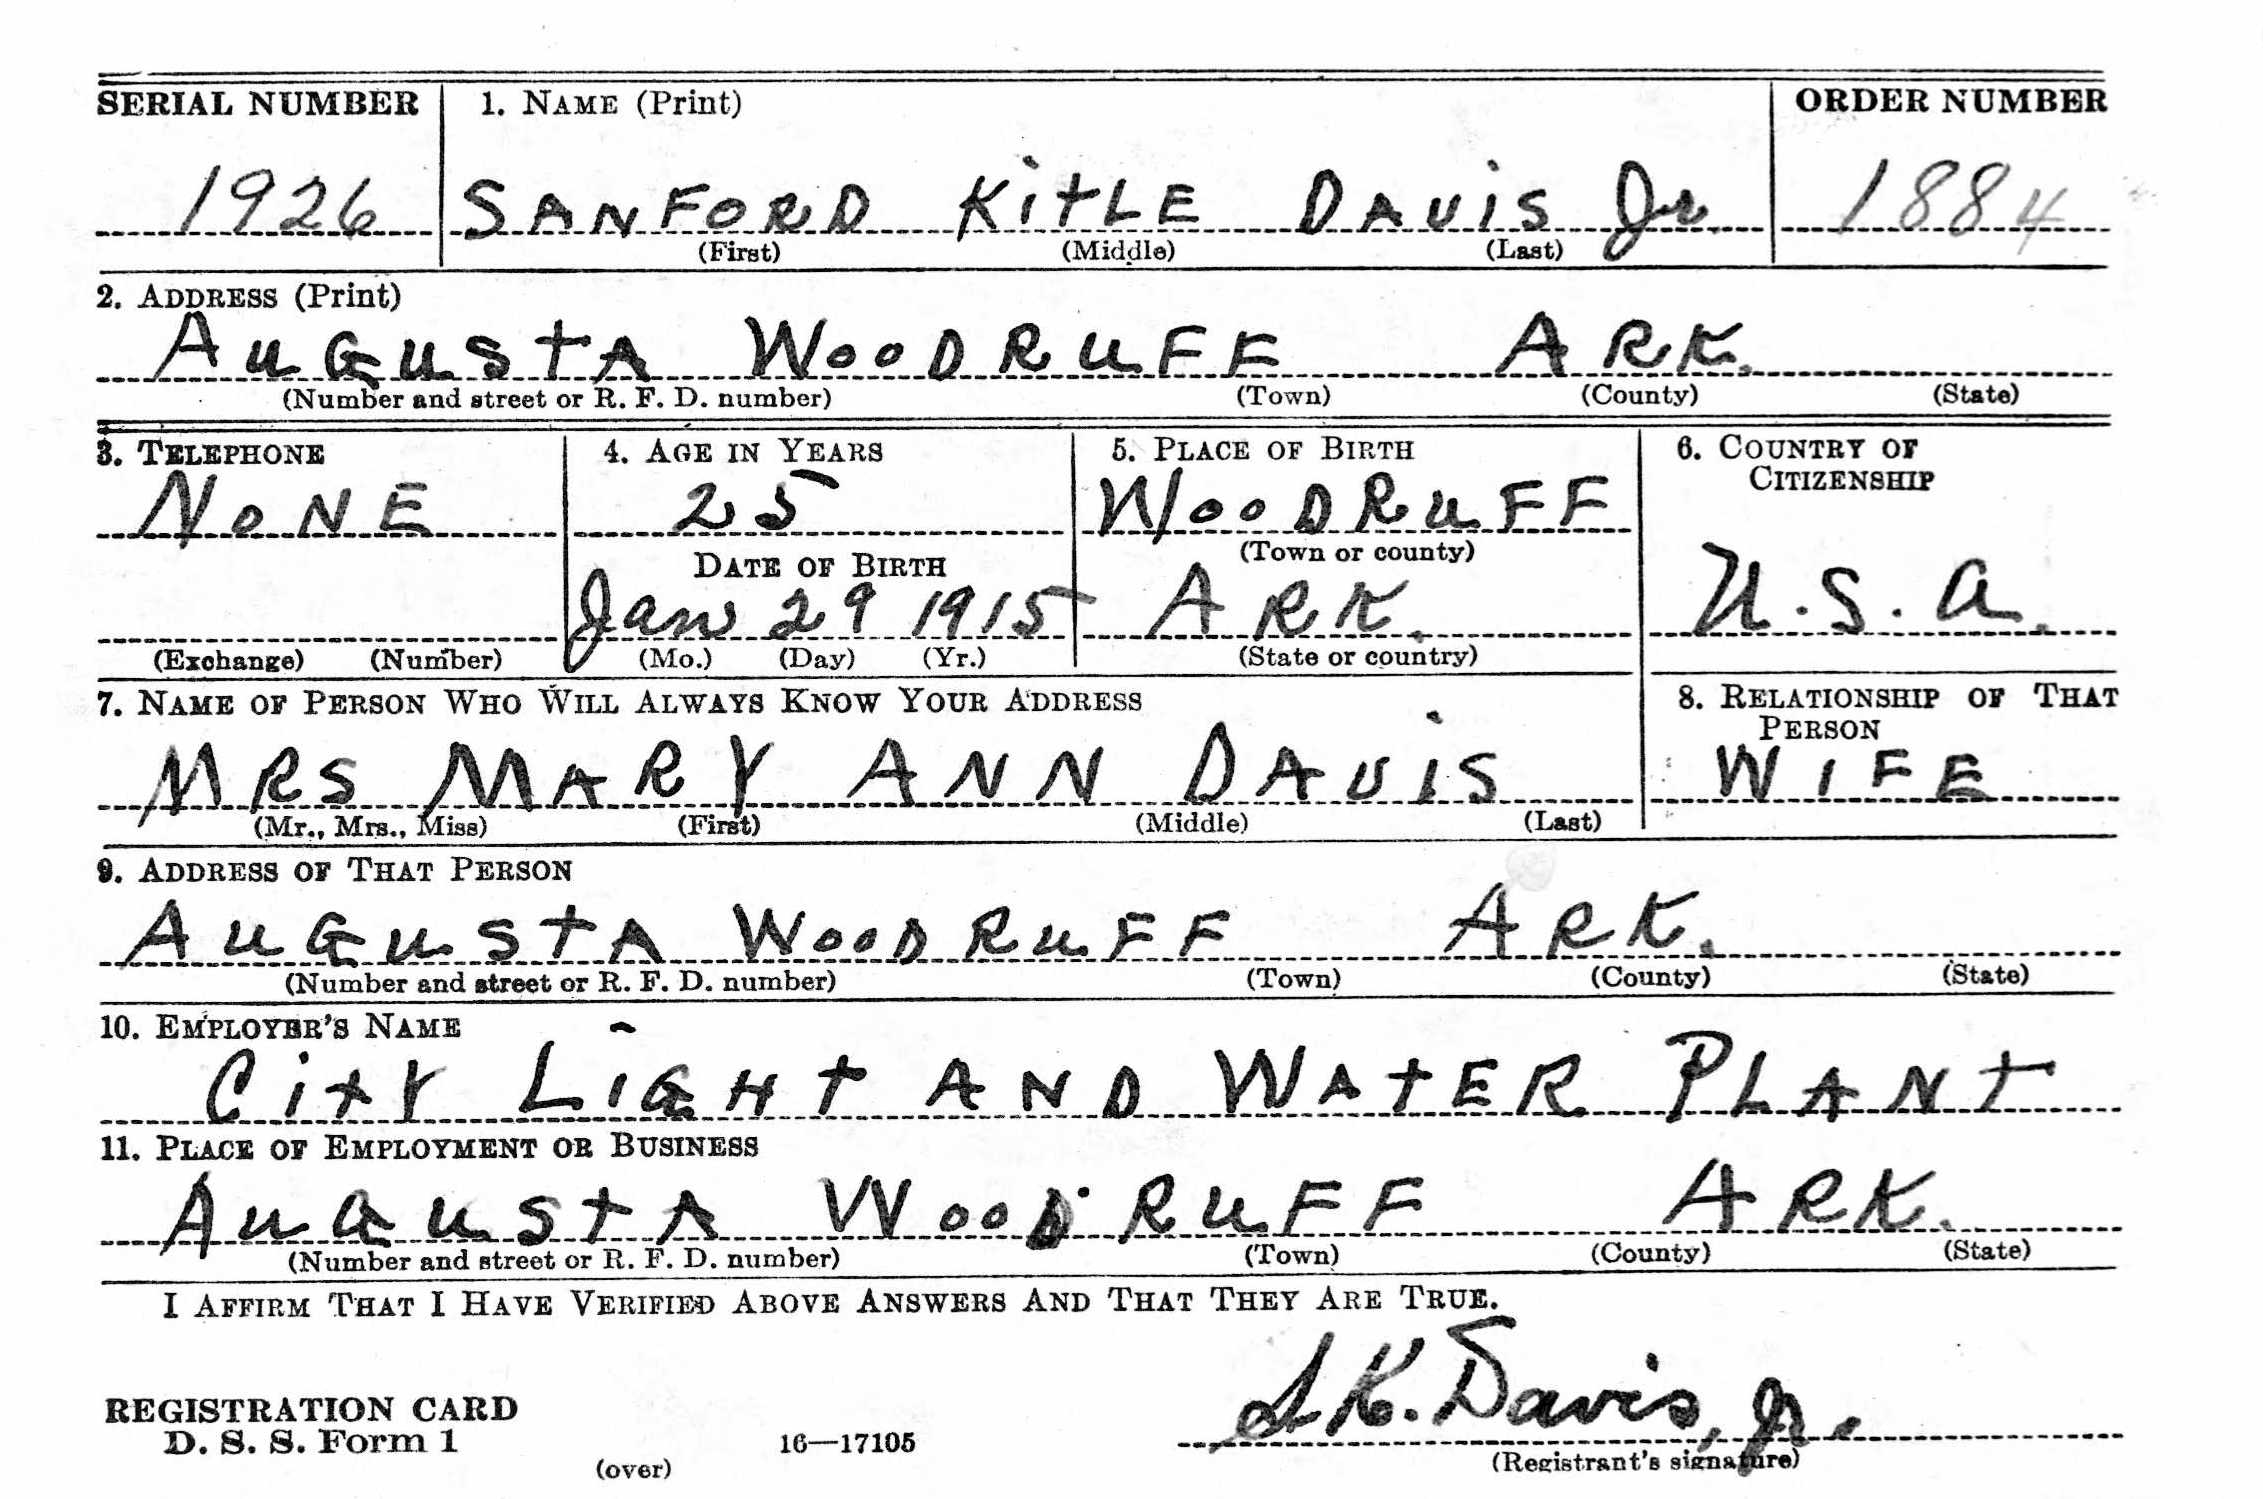 SERIAL NUMBER 1. NAME (Print) ORDER NUMBER
1926 SANFORD KITLE DAVIS Jr. 1884
(First) (Middle) (Last)
2. ADDRESS (Print)
AUGUSTA WOODRUFF ARK.
(Number and street or R. F. D. number) (Town) (County) (State)
3. TELEPHONE 4. AGE IN YEARS 5. PLACE OF BIRTH 6. COUNTRY OF
CITIZENSHIP
NONE 25 WOODRUFF
(Town or county)
DATE OF BIRTH
Jan 29 1915 ARK. U.S.A.
(Exchange) (Number) (Mo.) (Day) (Yr.) (State or country)
7. NAME OF PERSON WHO WILL ALWAYS KNOW YOUR ADDRESS 8. RELATIONSHIP OF THAT
PERSON
MRS MARY ANN DAVIS WIFE
(Mr., Mrs., Miss) (First) (Middle) (Last)
9. ADDRESS OF THAT PERSON
AUGUSTA WOODRUFF ARK.
(Number and street or R. F. D. number) (Town) (County) (State)
10. EMPLOYER'S NAME
CITY LIGHT AND WATER PLANT
11. PLACE OF EMPLOYMENT OR BUSINESS
AUGUSTA WOODRUFF ARK.
(Number and street or R. F. D. number) (Town) (County) (State)
I AFFIRM THAT I HAVE VERIFIED ABOVE ANSWERS AND THAT THEY ARE TRUE.
S.K. Davis, Jr.
REGISTRATION CARD
D. S. S. Form 1 16—17105
(over) (Registrant's signature)